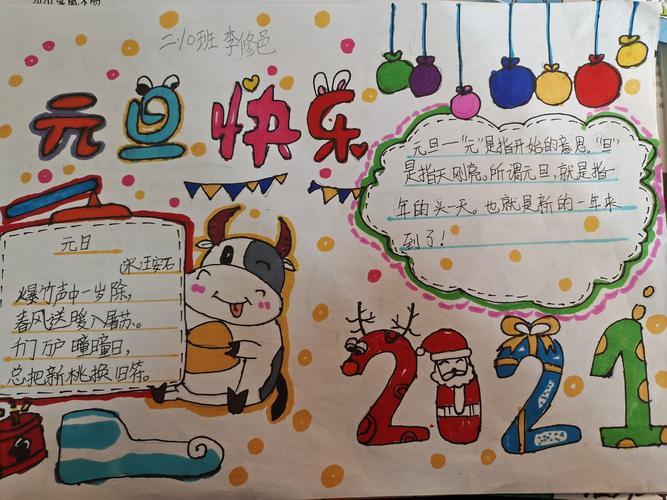 二.10班 李修邑
元旦快乐
元旦一"元"是指开始的意思,"旦"
是指天刚亮。所谓元旦,就是指
年的头一天。也就是新的一年来
到了!
元日
宋:王安石
爆竹声中一岁除,
春风送暖入屠苏。
千门万户曈曈日,
总把新桃换旧符。
2021